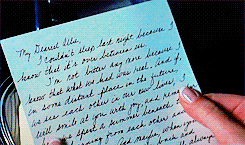 My Dearest Allie,
I couldn't sleep last night because I
know that it's over between us.
I'm not bitter any more because I
know that what we had was real. And if,
in some distant place in the future,
we see each other in our new lives, I
will smile at you with joy and
spent a summer beneath
from each other and
And maybe, when you
back and
always